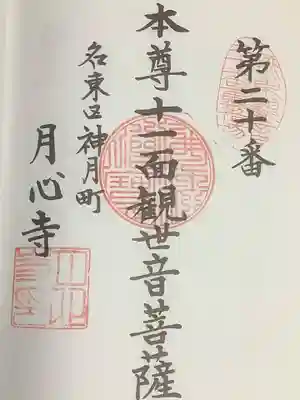 第二十番
本尊十一面観世音菩薩
名東区神月町
月心寺